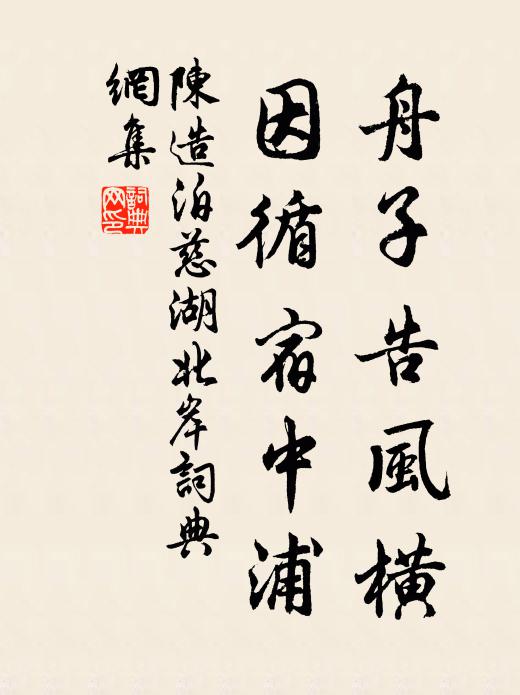 舟子告風橫
因循宿中浦
陳造泊慈湖北岸詞典
網集
詞典網印